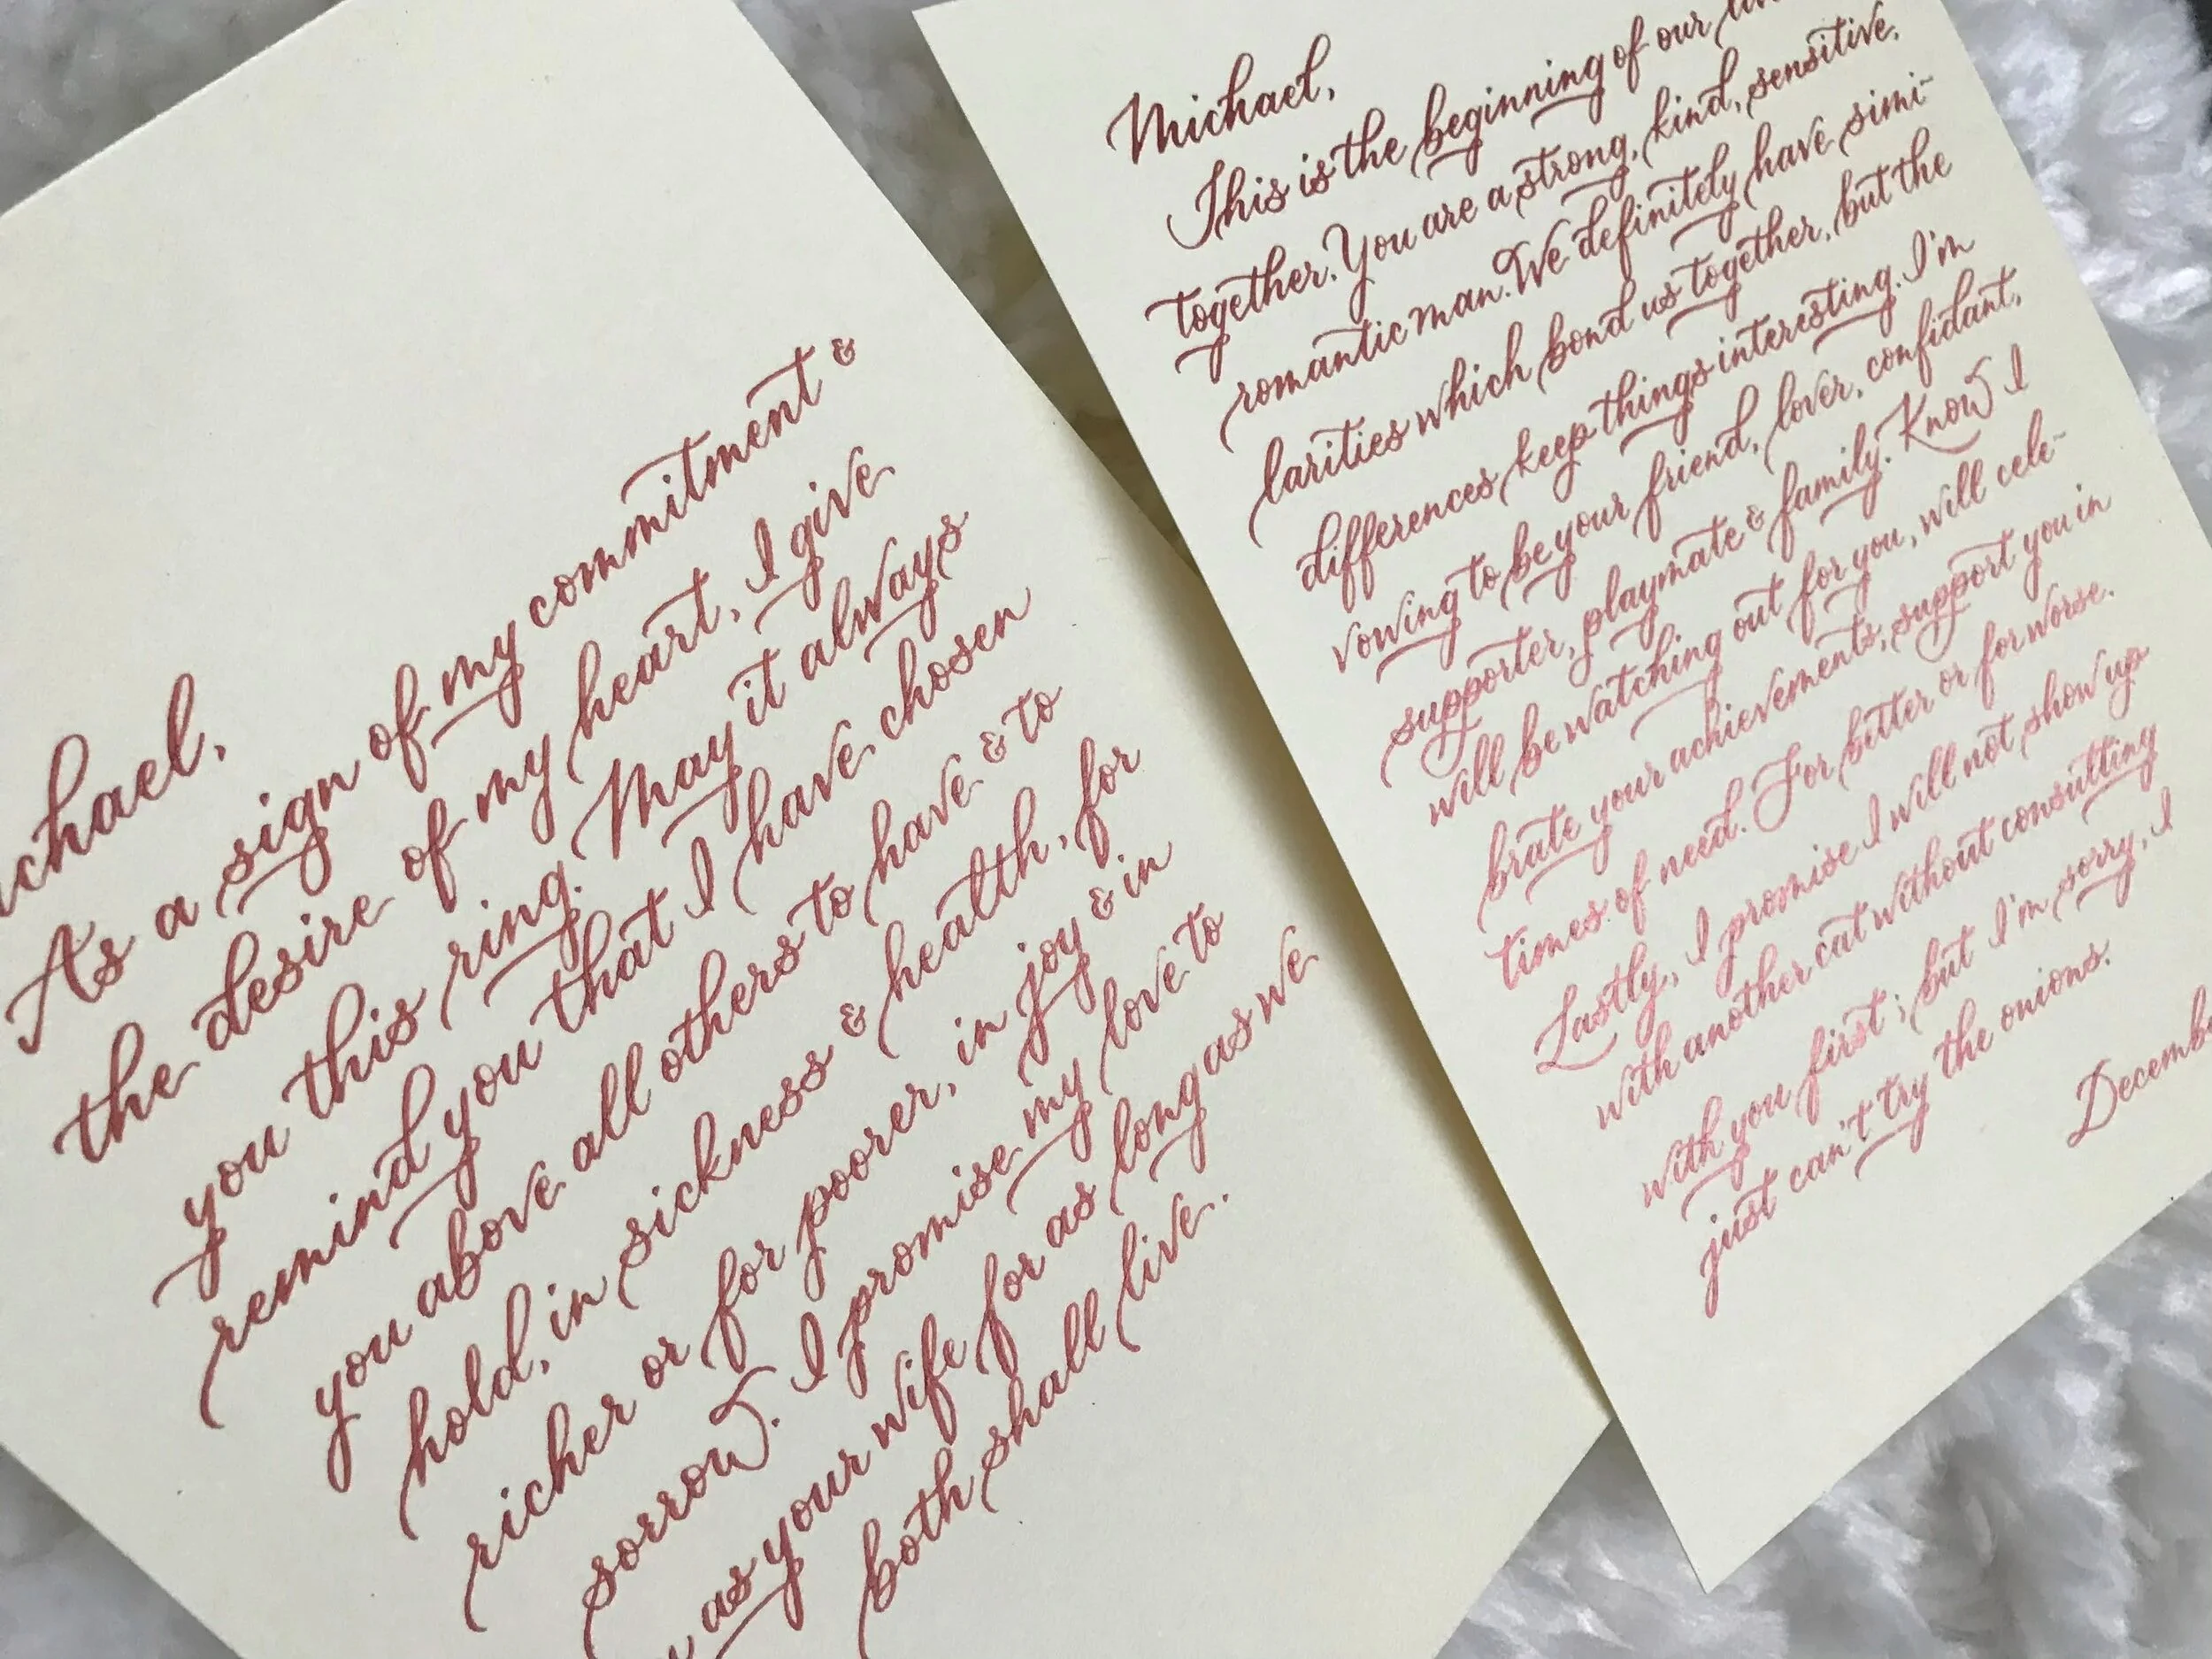 chael,
As a sign of my commitment &
the desire of my heart, I give
you this ring. May it always
remind you that I have chosen
you above all others to have & to
hold, in sickness & health, for
richer or for poorer, in joy & in
sorrow. I promise my love to
as your wife for as long as we
both shall live.
Michael,
This is the beginning of our
together. You are a strong, kind, sensitive,
romantic man. We definitely have simi-
larities which bond us together, but the
differences keep things interesting. I'm
vowing to be your friend, lover, confidant,
supporter, playmate & family. Know I
will be watching out for you, will cele-
brate your achievements, support you in
times of need. For better or for worse.
Lastly, I promise I will not show up
with another cat without consulting
with you first; but I'm sorry, I
just can't try the onions.
Decemb